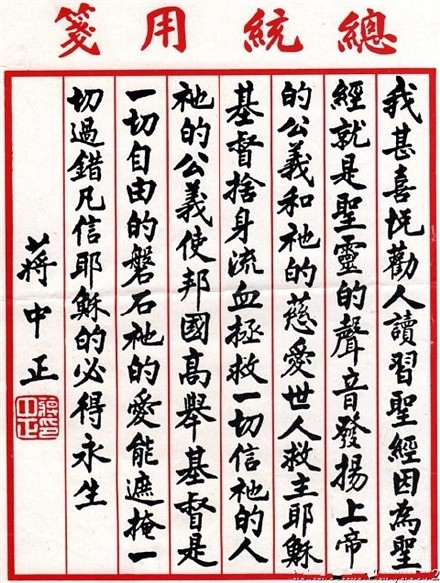 總統用箋
我甚喜悅勸人讀習聖經因為聖
經就是聖靈的聲音發揚上帝
的公義和祂的慈愛世人救主耶穌
基督捨身流血拯救一切信祂的人
祂的公義使邦國高舉基督是
一切自由的磐石祂的愛能遮掩一
切過錯凡信耶穌的必得永生
蔣中正